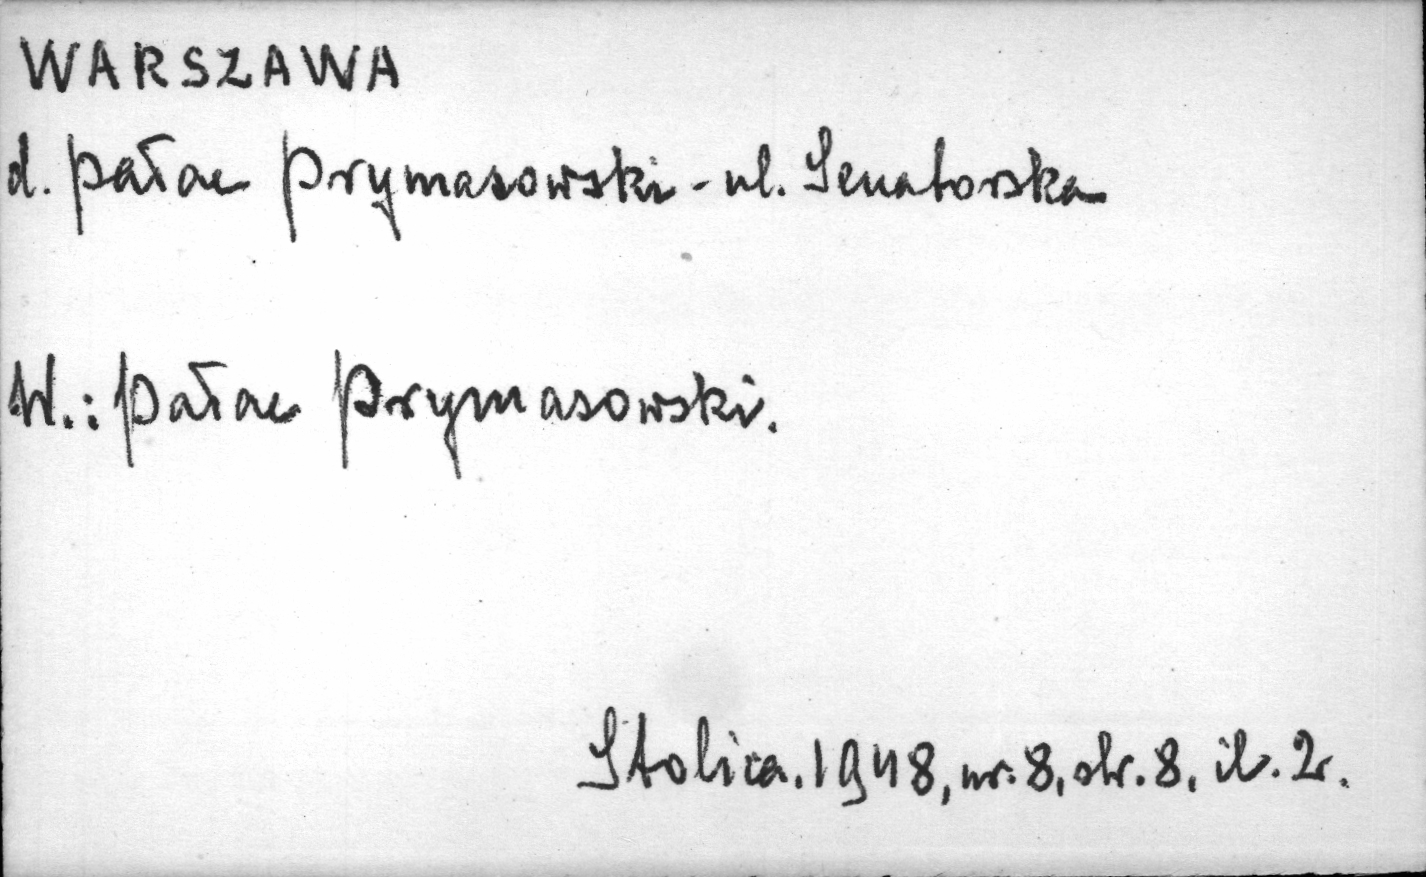 WARSZAWA
d. pałac Prymasowski - ul. Senatorska
W.: Pałac Prymasowski.
Stolica. 1948, nr. 8, str. 8, il. 2.